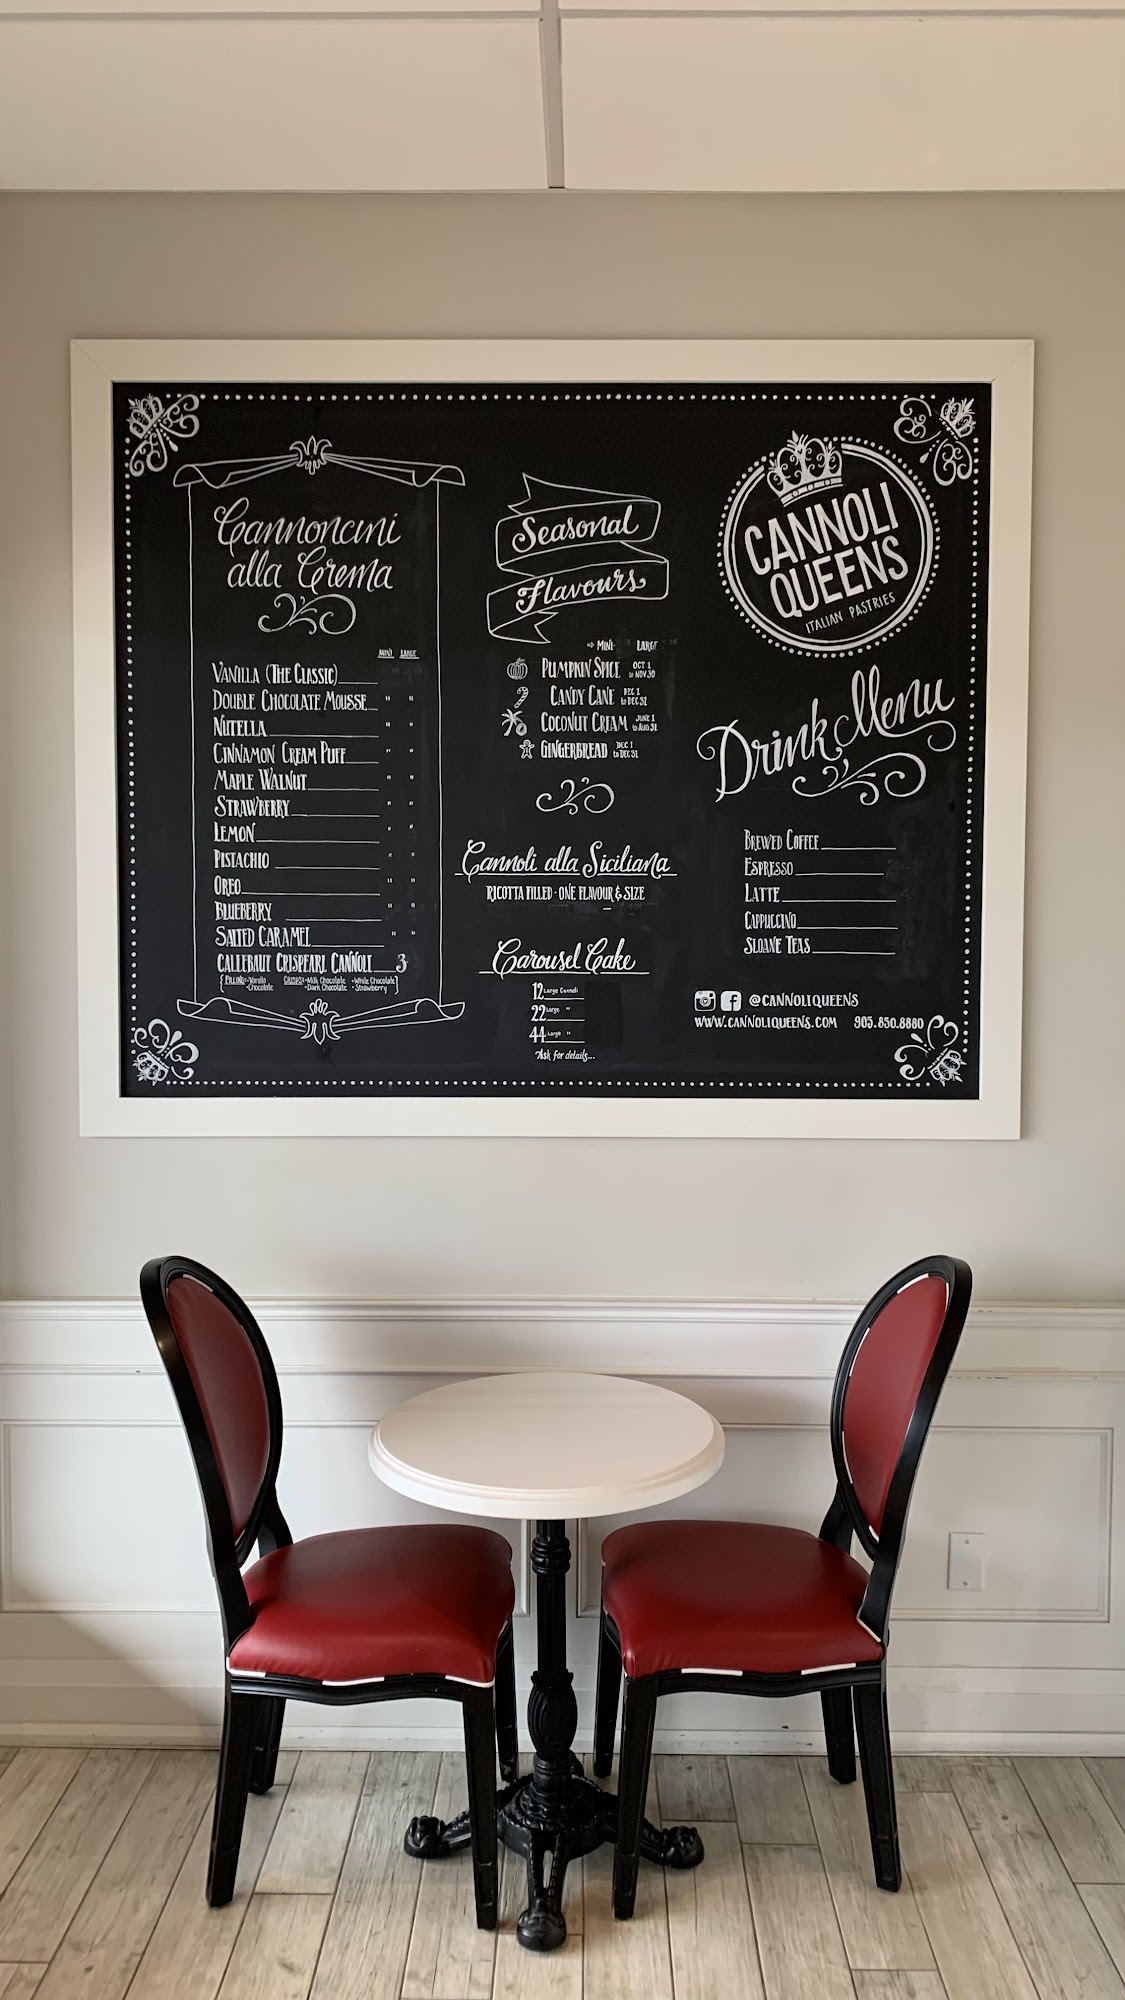 Cannoncini
alla Crema
MINI LARGE
VANILLA (THE CLASSIC)
DOUBLE CHOCOLATE MOUSSE " "
NUTELLA " "
CINNAMON CREAM PUFF " "
MAPLE WALNUT " "
STRAWBERRY " "
LEMON " "
PISTACHIO " "
OREO " "
BLUEBERRY " "
SALTED CARAMEL " "
CALLEBAUT CRISPEARL CANNOLI 3
{FILLING: • Vanilla CRISPS: • Milk Chocolate • White Chocolate}
• Chocolate • Dark Chocolate • Strawberry
Seasonal
Flavours
MINI LARGE
PUMPKIN SPICE OCT 1 to NOV 30
CANDY CANE DEC 1 to DEC 31
COCONUT CREAM JUNE 1 to AUG 31
GINGERBREAD DEC 1 to DEC 31
Cannoli alla Siciliana
RICOTTA FILLED - ONE FLAVOUR & SIZE
Carousel Cake
12 Large Cannoli
22 Large "
44 Large "
*Ask for details...
CANNOLI
QUEENS
ITALIAN PASTRIES
Drink Menu
BREWED COFFEE
ESPRESSO
LATTE
CAPPUCCINO
SLOANE TEAS
@CANNOLIQUEENS
WWW.CANNOLIQUEENS.COM 905.850.8880